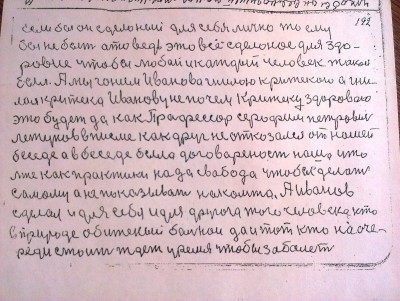 192
сем бы он сделоный для себя лично то ему
бы небыт ато ведь это всё сделоное для здо-
ровие чтобы любой и каждый человек таков
был. А мы гоним Иванова гнилою критекою а гни-
лая критека Иванову не почем Критеку здороваю
это будет да как Профессор серофим петрович
летунов в писме как друг не отказался от нашей
беседе а в беседе была договареност наша, что
мне как практики нада свабода чтобы сделат
самому а не показыват на компа. А Иванов
сделал и для себя и для другога того человека, кто
в природе обиженый бальной да и тот кто на оче-
реди стоит ждет уремя чтобы забалет